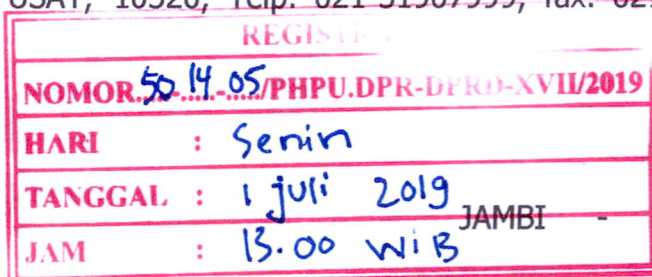 10320, Telp. 021-31907999, fax. 02
NOMOR. 50-14-05/PHPU.DPR-DPRD-XVII/2019
HARI : Senin
TANGGAL : 1 juli 2019
JAMBI -
JAM : 13.00 WIB